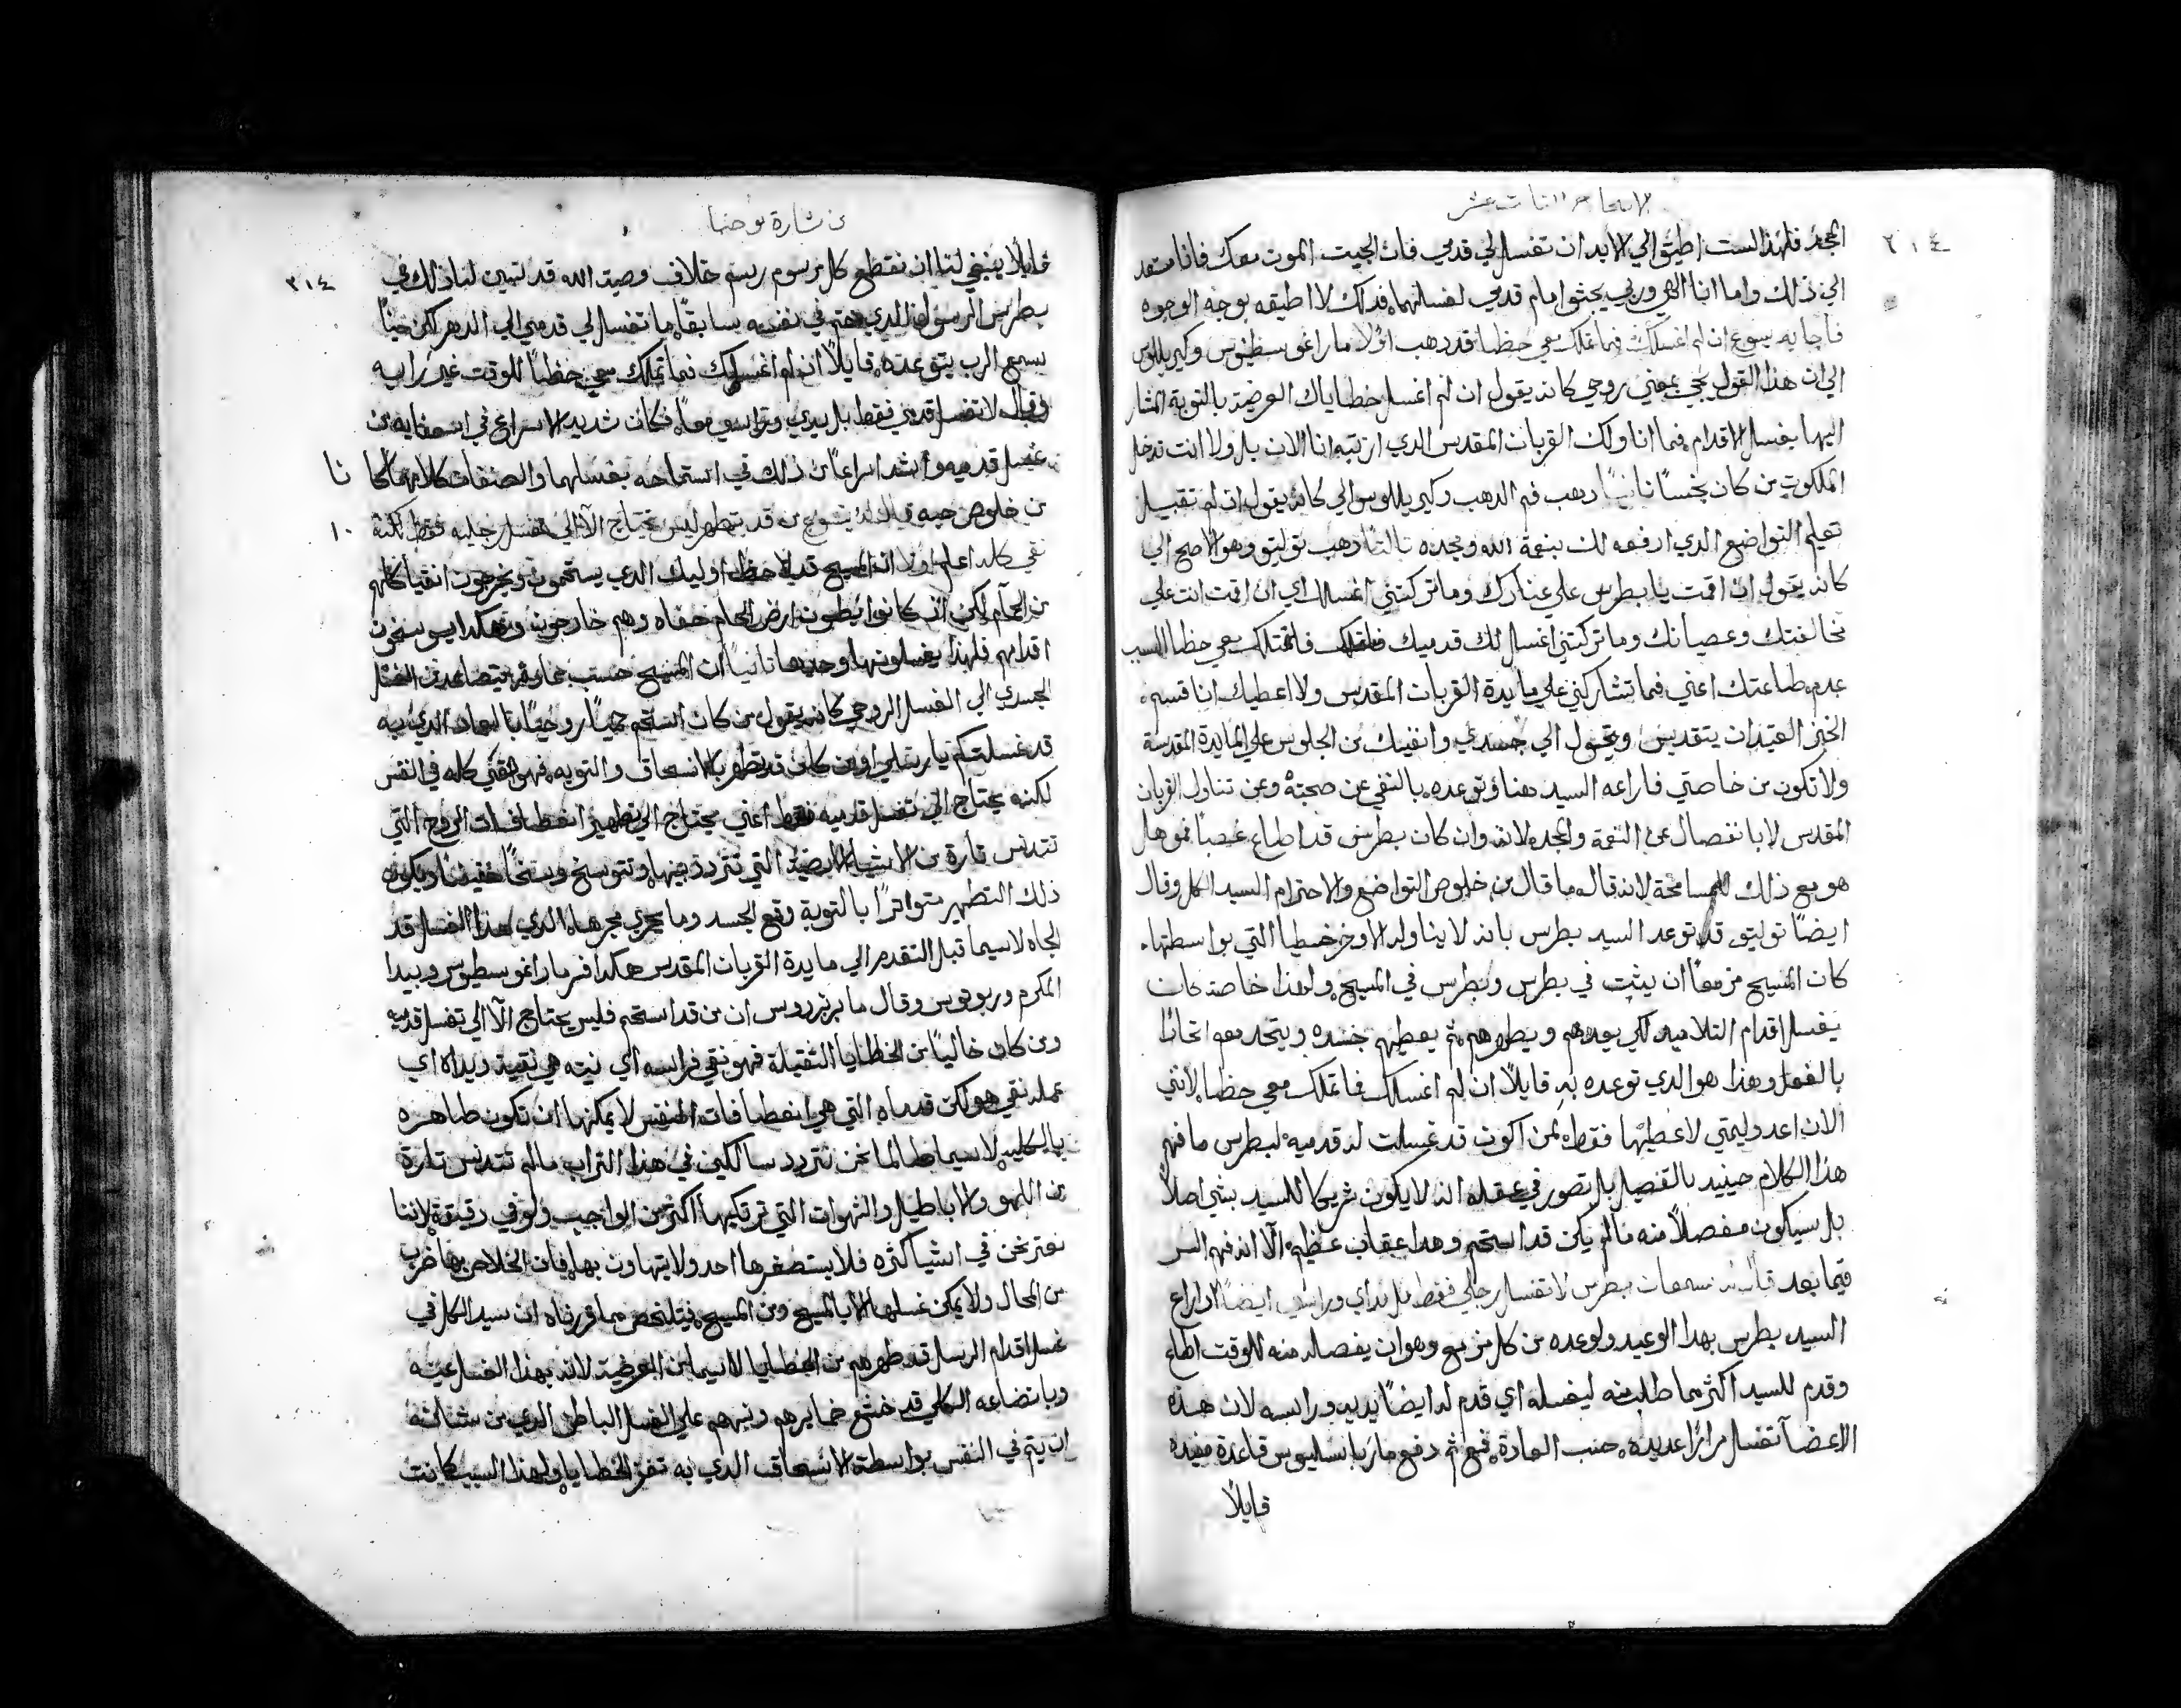 الاصحاح الثالث عشر
٣١٤
المجد فلهذا لست اطيق الي الابد ان تغسل لي قدمي فان الجيت الموت معك فانا مستعد
الي ذلك واما انا الهي وربي يجثوا امام قدمي لغسلهما فدلك لا اطيقه بوجه الوجوه
فاجابه يسوع ان لم اغسلك فما تملك معي حظا قد دهب اولا ماراغوسطينوس وكيريللوس
الي ان هذا القول يجي بمعني روحي كانه يقول ان لم اغسل خطاياك العرضية بالتوبة المشار
اليها بغسل الاقدام فما اناولك القربان المقدس الدي ارتبه انا الان بل ولا انت تدخل
الملكوت من كان نجسا ثانيا دهب فم الدهب وكيريللوس الي كانه يقول ان لم تقبل
تعليم التواضع الدي ارفعه لك بنعمة الله ومجده ثالثا دهب توليتو وهو الاصح الي
كانه يقول ان اقمت يا بطرس علي عنادك وما تركتني اغسلك اي ان اقمت انت علي
مخالفتك وعصيانك وما تركتني اغسل لك قدميك فما تملك معي حظا السبب
عدم طاعتك اعني فما تشاركني علي مايدة القربان المقدس ولا اعطيك انا قسمة
الخبز العتيد ان يتقدس ويتحول الي جسدي وانفيك من الجلوس علي المايدة المقدسة
ولا تكون من خاصتي فاراعه السيد هنا وتوعده بالنفي عن صحبته وعن تناول القربان
المقدس لا بانفصال عن النعمة والمجد لانه وان كان بطرس قد اطاع غصبا فهو هل
هو مع ذلك للمسامحة لانه قال ما قال من خلوص التواضع والاحترام السيد الكل وقال
ايضا توليتو قد توعد السيد بطرس بانه لا يناوله الاوخرخسطيا التي بواسطتها
كان المسيح مزمعا ان يثبت في بطرس وبطرس في المسيح ولهذا خاصة كان
يغسل اقدام التلاميد لكي يعدهم ويطهرهم ثم يعطيهم جسده ويتحد معهم اتحادا
بالفعل وهذا هو الدي توعده به قايلا ان لم اغسلك فما تملك معي حظا لانني
الان اعد وليمتي لاعطيها فقط لمن اكون قد غسلت له قدميه لبطرس ما فهم
هذا الكلام حينيد بالتفصيل بل تصور في عقله انه لا يكون شريكا للسيد بشي اصلا
بل سيكون مفصلا منه ما لم يكن قد استحم وهدا عقاب عظيم الا انه فهم السر
فيما بعد قال له سمعان بطرس لا تغسل رجلي فقط بل يداي وراسي ايضا اد اراع
السيد بطرس بهدا الوعيد وهو ان يفصله منه للوقت اطاع
وقدم للسيد اكثر مما طلب منه ليغسله اي قدم له ايضا يديه وراسه لان هده
الاعضا تغسل مرارا عديده حسب العادة ثم دفع مار باسيليوس قاعدة مفيده
قايلا
من بشارة يوحنا
٣١٤
قايلا ينبغي لنا ان نقطع كل مرسوم رسم خلاف وصية الله قد تبين لنا ذلك في
بطرس الرسول الدي حتم في نفسه سابقا ما تغسل لي قدمي الي الدهر لكن حينا
يسمع الرب يتوعده قايلا ان لم اغسلك فما تملك معي حظا للوقت غير رايه
وقال لا تغسل قدمي فقط بل يدي وراسي معا فكان شديد الاسراع في استعفايه من
غسل قدميه واشد اسراعا من ذلك في استماحه بغسلهما والصفات كلاهما كانا
١٠
من خلوص حبه قال له يسوع من قد تطهر ليس يحتاج الا الي غسل رجليه فقط لكنه
نقي كله اعلم اولا ان المسيح قد لاحظ اوليك الدي يستحمون ويخرجون انقيا كلهم
من الحمام لكن اد كانوا يطون ارض الحمام حفاه وهم خارجون وهكدا يوسخون
اقدامهم فلهذا يغسلونها وحدها ثانيا ان المسيح حسب عادته يتصاعد من الغسل
الجسدي الي الغسل الروحي كانه يقول من كان استحم حميا روحيا بالعماد الدي به
قد غسلتكم يا رسلي او من كان قد تطهر بالانسحاق والتوبه فهو نقي كله في النفس
لكنه يحتاج الي غسل قدميه فقط اعني يحتاج الي تطهير انعطافات الروح التي
تتدنس تارة من الاشيا الارضية التي تتردد بينها وتتوسخ وسخا خفيفا ويكون
ذلك التطهير متواترا بالتوبة وقمع الجسد وما يجري مجرهاه الدي هذا الغسل قد
الجاه لاسيما قبل التقدم الي مايدة القربان المقدس هكدا فسر ماراغوسطينوس وبيدا
المكرم وربوتوس وقال مار برنردوس ان من قد استحم فليس يحتاج الا الي غسل قدميه
ومن كان خاليا من الخطايا الثقيلة فهو نقي فراسه اي نيته هي نقية ويداه اي
عمله نقي هو لكن قدماه التي هي انعطافات النفس لا يمكنها ان تكون طاهره
بالكليه لاسيما طالما نحن نتردد سالكين في هذا التراب ما لم تتدنس تارة
من اللهو والاباطيل والشهوات التي ترتكبها اكثر من الواجب ولو في دقيقة لاننا
نعتر نحن في اشيا كثره فلا يستصغرها احد ولا يتهاون بها فان الخلاص بها ضرب
من المحال ولا يمكن غسلها الا بالمسيح ومن المسيح فيتلخص مما قررناه ان سيد الكل في
غسل اقدام الرسل قد طهرهم من الخطايا لاسيما من العرضية لانه بهذا الغسل عينه
وباتضاعه الكلي قد خشع ضمايرهم ونبههم علي الغسل الباطن الدي من شانه
ان يتم في النفس بواسطة الانسحاق الدي به تغفر الخطايا ولهذا السبب كانت